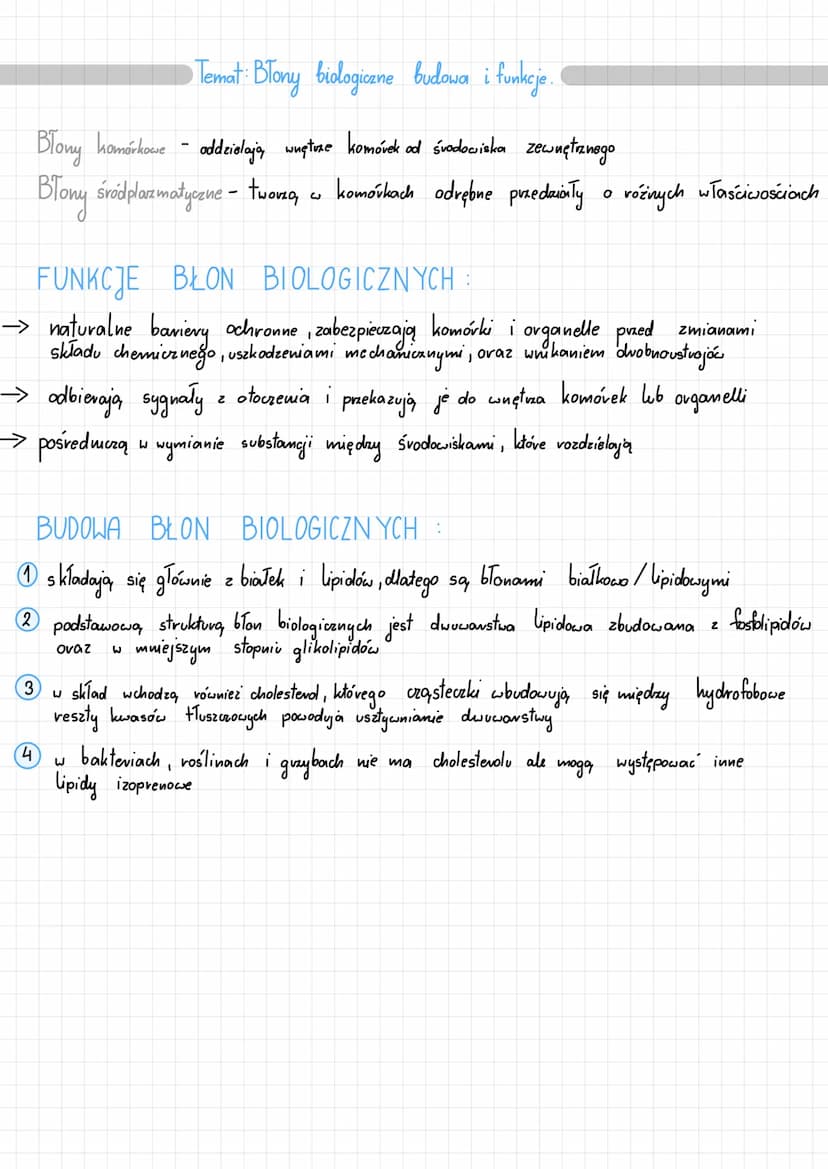 Temat: Błony biologiczne budowa i funkcje.
Błony komórkowe - oddzielają wnętrze komórek od środowiska zewnętrznego
Błony śródplazmatyczne - tworzą w komórkach odrębne przedziały o różnych właściwościach
FUNKCJE BŁON BIOLOGICZNYCH :
→ naturalne bariery ochronne, zabezpieczają komórki i organelle przed zmianami
składu chemicznego, uszkodzeniami mechanicznymi, oraz wnikaniem drobnoustrojów
→ odbierają sygnały z otoczenia i przekazują je do wnętrza komórek lub organelli
→ pośredniczą w wymianie substancji między środowiskami, które rozdzielają
BUDOWA BŁON BIOLOGICZNYCH :
① składają się głównie z białek i lipidów, dlatego są błonami białkowo/lipidowymi
② podstawową strukturą błon biologicznych jest dwuwarstwa lipidowa zbudowana z fosfolipidów
oraz w mniejszym stopniu glikolipidów
③ w skład wchodzą również cholesterol, którego cząsteczki wbudowują się między hydrofobowe
reszty kwasów tłuszczowych powodują usztywnianie dwuwarstwy
④ w bakteriach, roślinach i grzybach nie ma cholesterolu ale mogą występować inne
lipidy izoprenowe